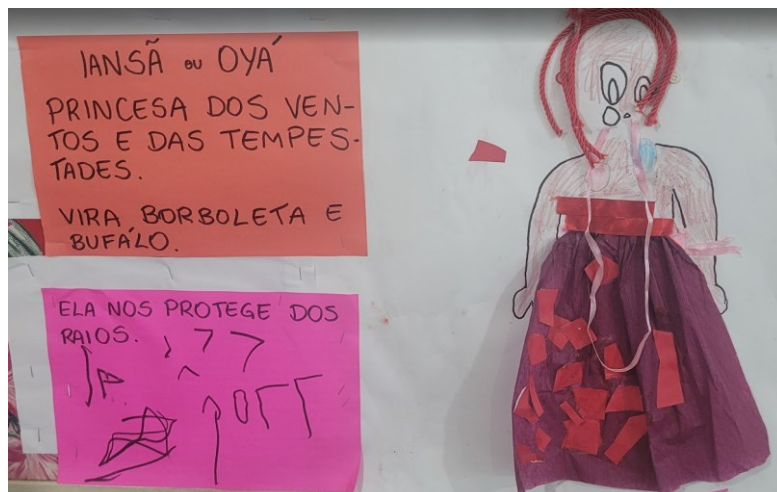 IANSÃ ou OYÁ
PRINCESA DOS VEN-
TOS E DAS TEMPES-
TADES.
VIRA BORBOLETA E
BUFÁLO.
ELA NOS PROTEGE DOS
RAIOS.